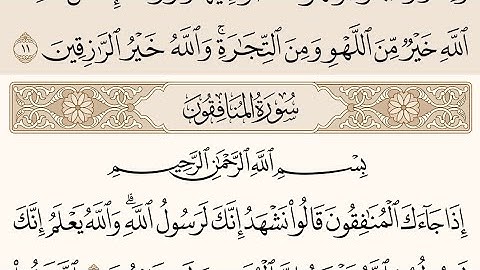 ٱللَّهِ خَيْرٌ مِّنَ ٱللَّهْوِ وَمِنَ ٱلتِّجَٰرَةِ ۚ وَٱللَّهُ خَيْرُ ٱلرَّٰزِقِينَ ١١
سُورَةُ المُنَافِقُونَ
بِسْمِ ٱللَّهِ ٱلرَّحْمَٰنِ ٱلرَّحِيمِ
إِذَا جَآءَكَ ٱلْمُنَٰفِقُونَ قَالُوا۟ نَشْهَدُ إِنَّكَ لَرَسُولُ ٱللَّهِ ۗ وَٱللَّهُ يَعْلَمُ إِنَّكَ